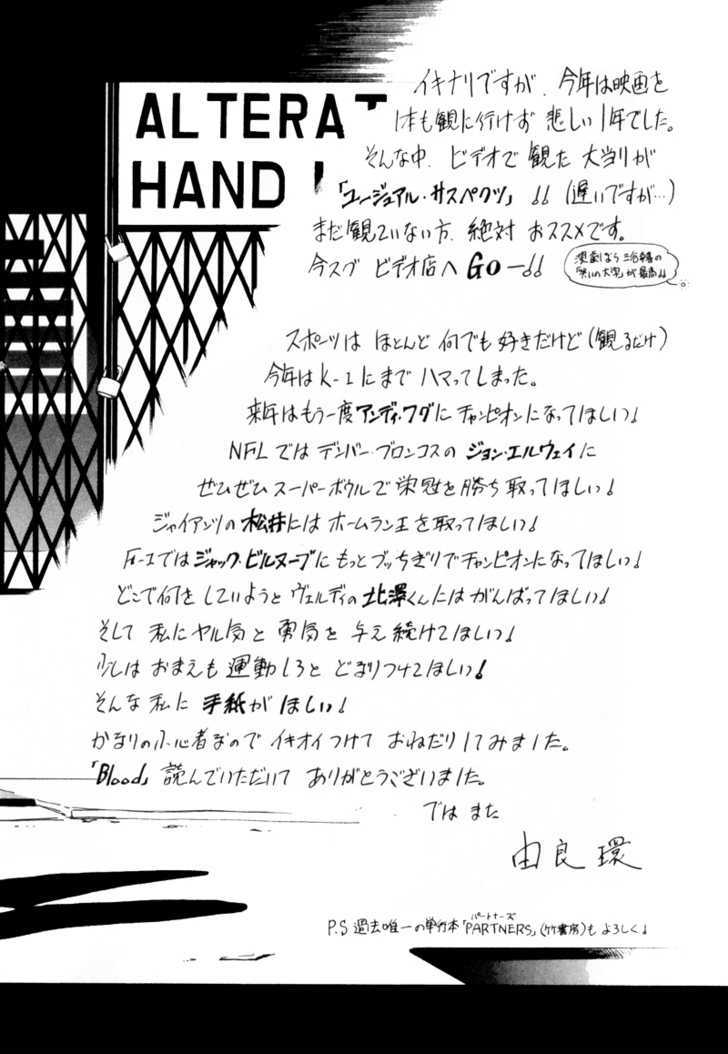 ALTERAT
HAND
イキナリですが、今年は映画を
1本も観に行けず 悲しい1年でした。
そんな中、ビデオで観た大当りが
「ユージュアル・サスペクツ」!! (遅いですが…)
まだ観ていない方、絶対おススメです。
今スグ ビデオ店へ GO—!!
演劇なら 三谷幸喜の
「笑の大学」が最高!!
スポーツは ほとんど 何でも好きだけど (観るだけ)
今年はK-1にまで ハマってしまった。
来年はもう一度アンディ・フグにチャンピオンになってほしい!
NFLでは デンバー・ブロンコスの ジョン・エルウェイに
ぜひぜひスーパーボウルで栄冠を勝ち取ってほしい!
ジャイアンツの松井にはホームラン王を取ってほしい!
F-1ではジャック・ビルヌーブにもっとブッちぎりでチャンピオンになってほしい!
どこで何をしていようと ヴェルディの北澤くんにはがんばってほしい!
そして 私にヤル気と勇気を与え続けてほしい!
少しは おまえも運動しろと どなりつけてほしい!
そんな私に 手紙がほしい!
かなりの小心者なので イキオイつけて おねだりしてみました。
「Blood」読んでいただいて ありがとうございました。
では また
由良 環
P.S 過去唯一の単行本「PARTNERS」(竹書房)も よろしく!
パートナーズ